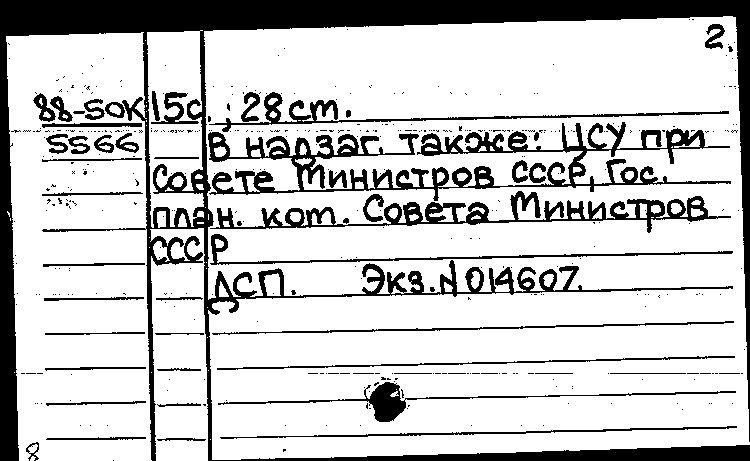 2.
88-5ОК 15с. ; 28 cm.
5566 В надзаг. также: ЦСУ при
Совете Министров СССР, Гос.
план. ком. Совета Министров
СССР
ДСП. Экз. N 014607.
8